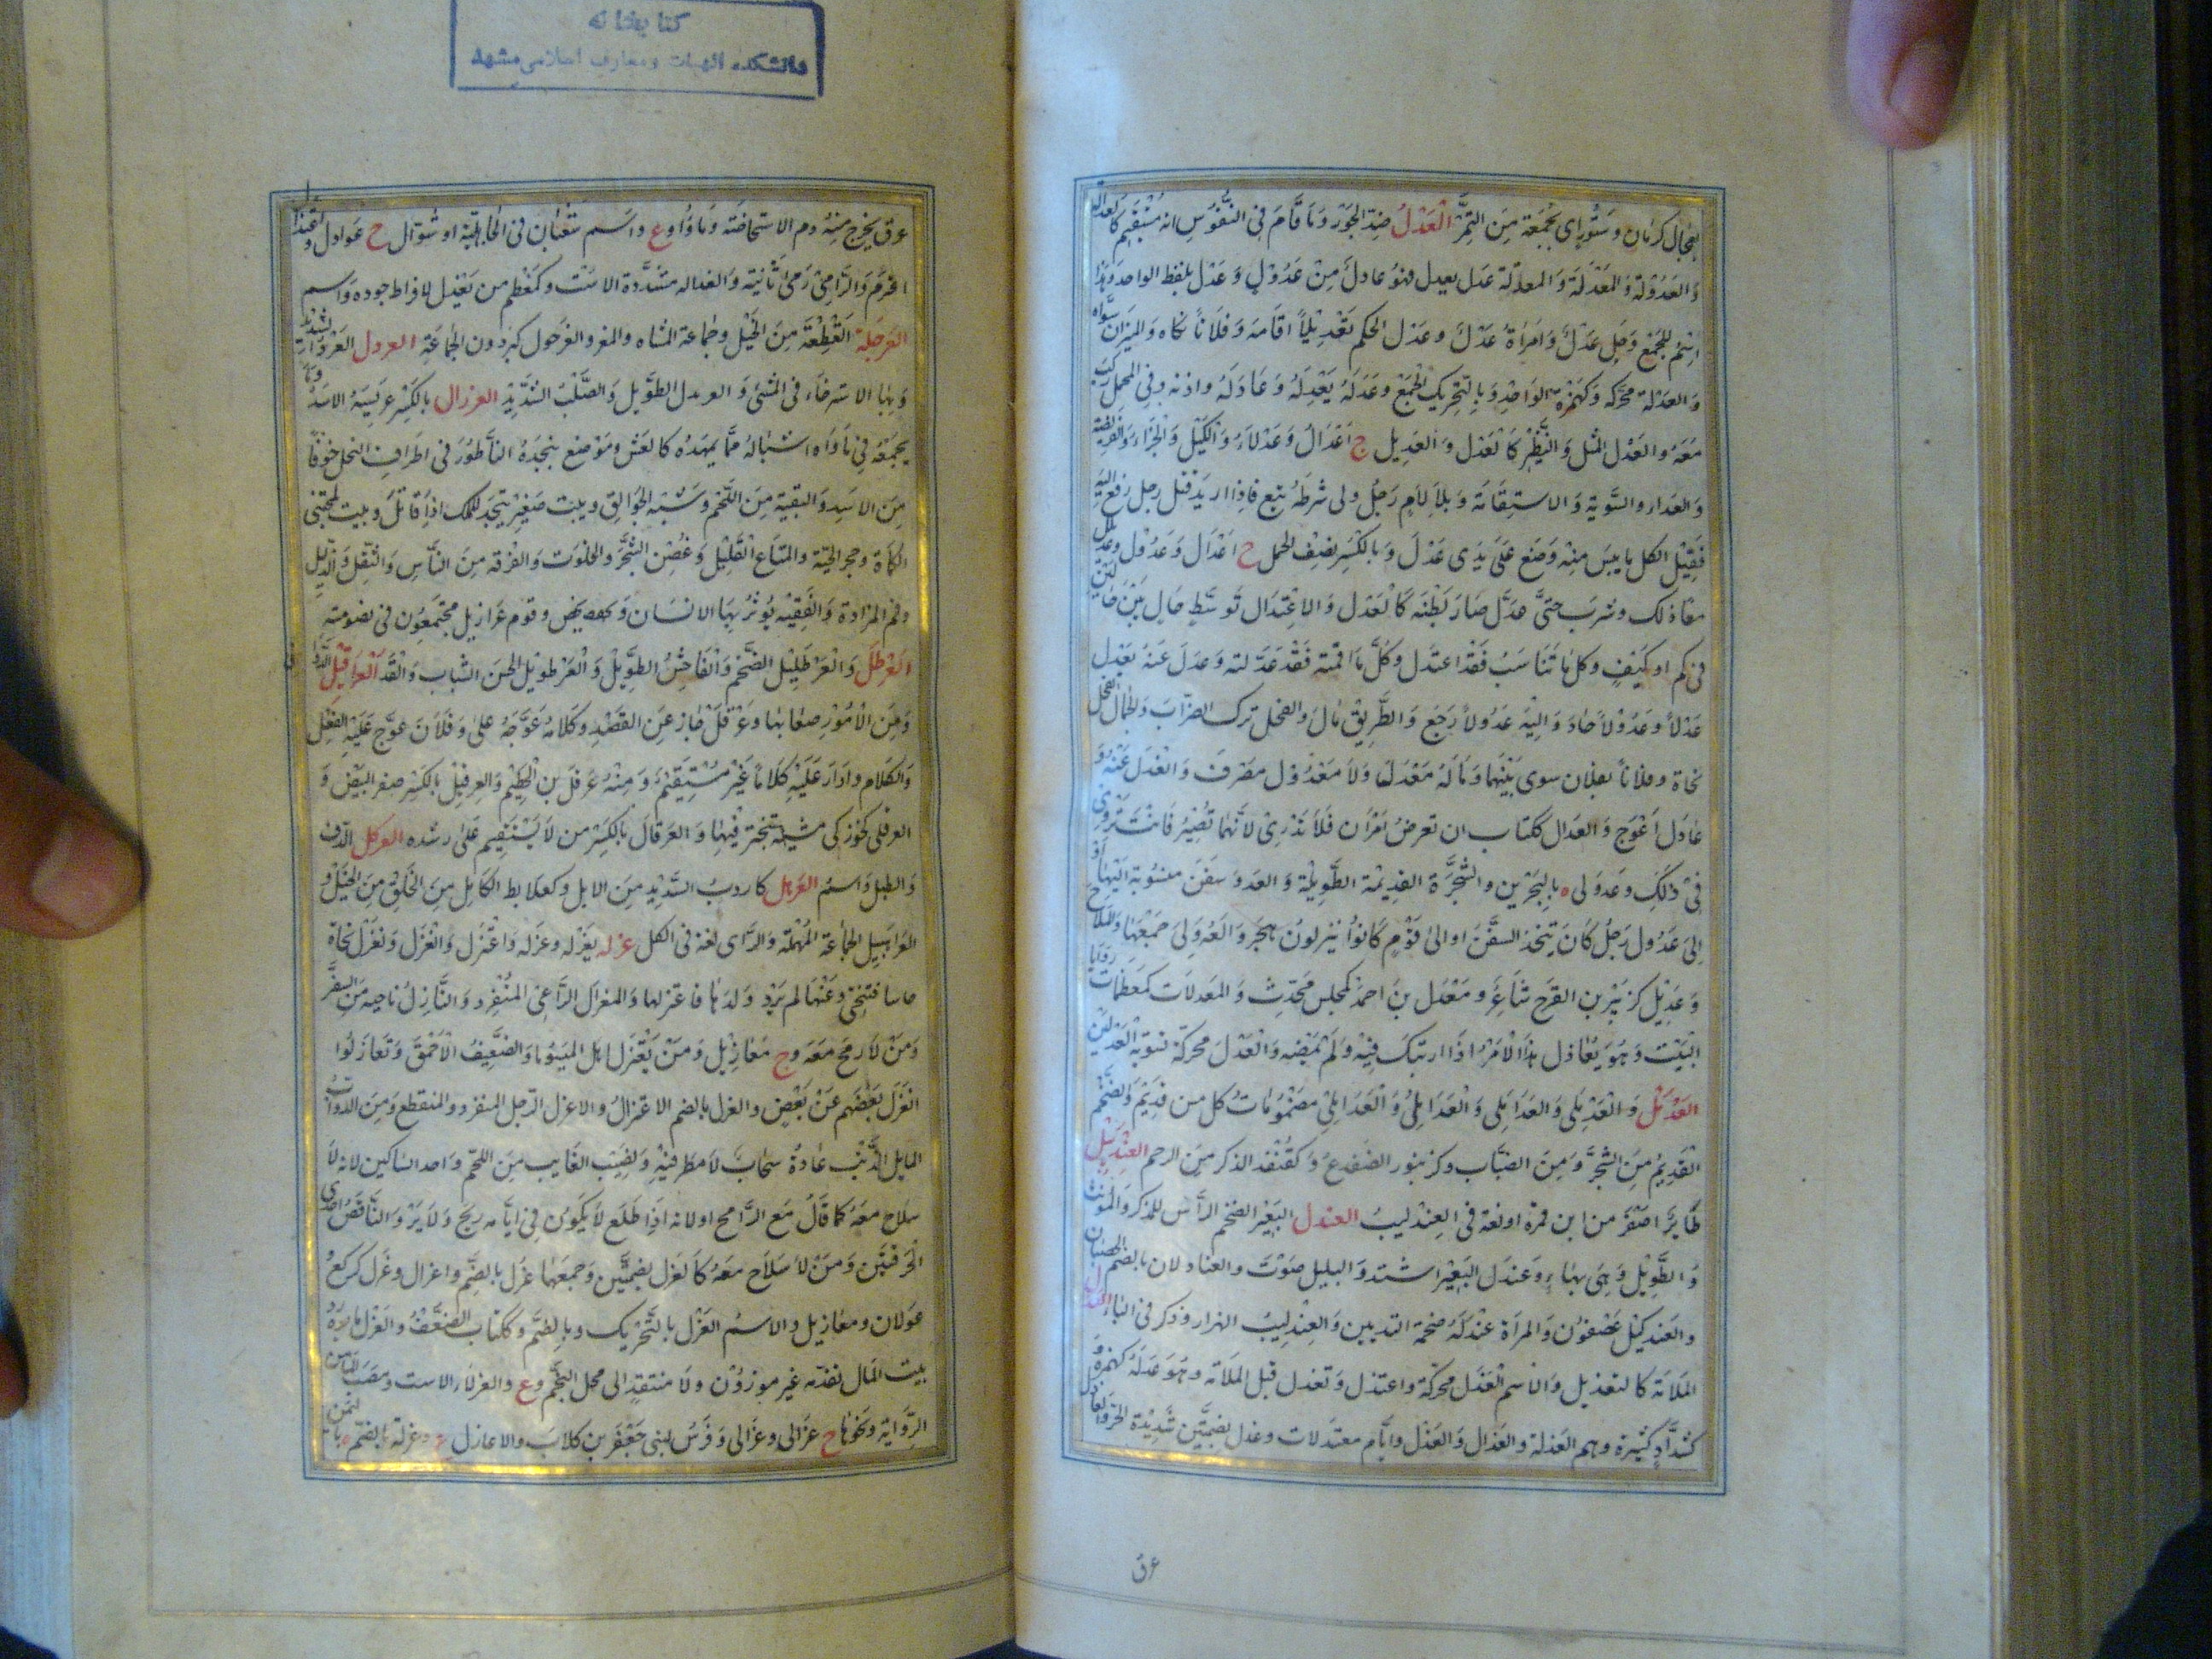 بعجال كرمان وسنور اى بجمعة من التمر العدل ضد الجور وما قام فى النفوس انه مستقيم كالعدالة
والعدولة والمعدلة والمعدلة عدل يعدل فهو عادل من عدول وعدل بلفظ الواحد وهذا
اسم للجمع رجل عدل وامراة عدل وعدل الحكم تعديلا اقامه وفلانا زكاه والميزان سواه
والعدلة محركة وكهمزة الواحد وبالتحريك الجمع وعدله يعدله وعادله وازنه وفى المحمل ركب
معه والعدل المثل والنظير كالعدل والعديل ج اعدال وعدلاء والكيل والجزاء والفريضة
والفداء والسوية والاستقامة وبلا لام رجل ولى شرطة تبع فاذا اريد قتل رجل رفع اليه
فقيل لكل ما يئس منه وضع على يدى عدل وبالكسر نصف الحمل ح اعدال وعدول وعديلك
معادلك وشرب حتى عدل صار بطنه كالعدل والاعتدال توسط حال بين حالين
فى كم او كيف وكل ما تناسب فقد اعتدل وكل ما اقمته فقد عدلته وعدل عنه يعدل
عدلا وعدولا حاد واليه عدولا رجع والطريق مال والفحل ترك الضراب والجمال الفحل
نحاه وفلانا بفلان سوى بينهما وماله معدل ولا معدول مصرف وانعدل عنه و
عادل اعوج والعدال ككتاب ان تعرض امران فلا تدرى لايهما تصير فانت تروى
فى ذلك وعدولى ه بالبحرين والشجرة القديمة الطويلة والعدو سفن منسوبة اليها او
الى عدول رجل كان يتخذ السفن او الى قوم كانوا ينزلون هجر والعدولى جمعها والملاح
وعديل كزبير بن الفرخ شاعر ومعدل بن احمد كمجلس محدث والمعدلات كمعظمات زوايا
البيت وهو يعادل هذا الامر اذا ارتبك فيه ولم يمضه والعدل محركة تسوية العدلين
العدمل والعدملى والعدامل والعدامل والعداملى مضمومات كل مسن قديم والضخم
القديم من الشجر ومن الضباب وكزنبور الضفدع وكقنفذ الذكر من الرخم العنديل
طائر اصغر من ابن تمرة او لغة فى العندليب العندل البعير الضخم الراس للمذكر والمونث
والطويل وهى بهاء وعندل البعير اشتد والبلبل صوت والعنادلان بالضم الخصيان
والعندليل عصفور والمراة عندلة ضخمة الثديين والعندليب الهزار وذكر فى الباء العذل
الملامة كالتعذيل والاسم العذل محركة واعتذل وتعذل قبل الملامة وهو عذلة كهمزة و
كشداد كثيره وهم العذلة والعذال والعذل وايام معتذلات وعذل بضمتين شديدة الحر والعاذل
ع ق
كتابخانه
دانشكده الهيات ومعارف اسلامى مشهد
عرق يخرج منه دم الاستحاضة وماؤ او ع واسم شعبان فى الجاهلية او شوال ح عواذل واعتذل
اعترم والرامى رمى ثانية والعذالة مشددة الاست وكمعظم من يعذل لافراط جوده واسم
العرجلة القطعة من الخيل وجماعة المشاه والمعز والعرجول كبرذون الجماعة العردل العردل الشديد
وبهاء الاسترخاء فى المشى والعردل الطويل والصلب الشديد العرزال بالكسر عريسة الاسد وما
يجمعه فى ماواه اشباله مما يمهده كالعش وموضع يتخذه الناطور فى اطراف النخل خوفا
من الاسد والبقية من اللحم وشبه الجوالق وبيت صغير يتخذ للملك اذا قاتل وبيت لمجتنى
الكماة وجحر الحية والمتاع القليل وغصن الشجر والحانوت والفرقة من الناس والثقل والذليل
وفم المزادة والفقيه يؤثر بها الانسان وقوم عرازيل مجتمعون فى خصومة
العرطل والعرطليل الضخم والفاحش الطويل والعرطويل الحسن الشباب والقد العراقيل الدواهى
ومن الامور صعابها وعرقل جار عن القصد وكلامه عوجه على وفلان عوج عليه الفعل
والكلام وادار عليه كلاما غير مستقيم ومنه عرقل بن الحطيم والعرقيل بالكسر صفرة البيض و
العرقلى كخوزلى مشية تبختر فيها والعرقال بالكسر من لا يستقيم على رشده العركل الدف
والطبل واسم العرهل كاردب الشديد من الابل وكعلابط الكامل من الخلق من الخيل و
العراهيل الجماعة المهملة والزاى لغة فى الكل عزله يعزله وعزله واعتزل وانعزل وتعزل نحاه
جانبا فتنحى وعنها لم يرد ولدها فاعتزلها والمعزال الراعى المنفرد والنازل ناحية من السفر
ومن لا رمح معه وج معازيل ومن يعتزل اهل الميسر لوما والضعيف الاحمق وتعازلوا
انعزل بعضهم عن بعض والعزل بالضم الاعتزال والاعزل الرجل المنفرد والمنقطع ومن الدواب
المائل الذنب عادة وسحاب لا مطر فيه ونصيب الغايب من اللحم واحد السماكين لانه لا
سلاح معه كما قال مع الرامح او لانه اذا طلع لا يكون فى ايامه ريح ولا برد والناقص احدى
الحرقفتين ومن لا سلاح معه كالعزل بضمتين وجمعهما عزل بالضم واعزال وعزل كركع و
عزلان ومعازيل والاسم العزل بالتحريك وبالضم وككتاب الضعف والعزل ما يورده
بيت المال تقدمة غير موزون ولا منتقد الى محل النجم وع والعزلاء الاست ومصب الماء من
الراوية ونحوها ح عزالى وعزالى وفرس لبنى جعفر بن كلاب والاعازل ع وعزلة بالضم ه باليمن